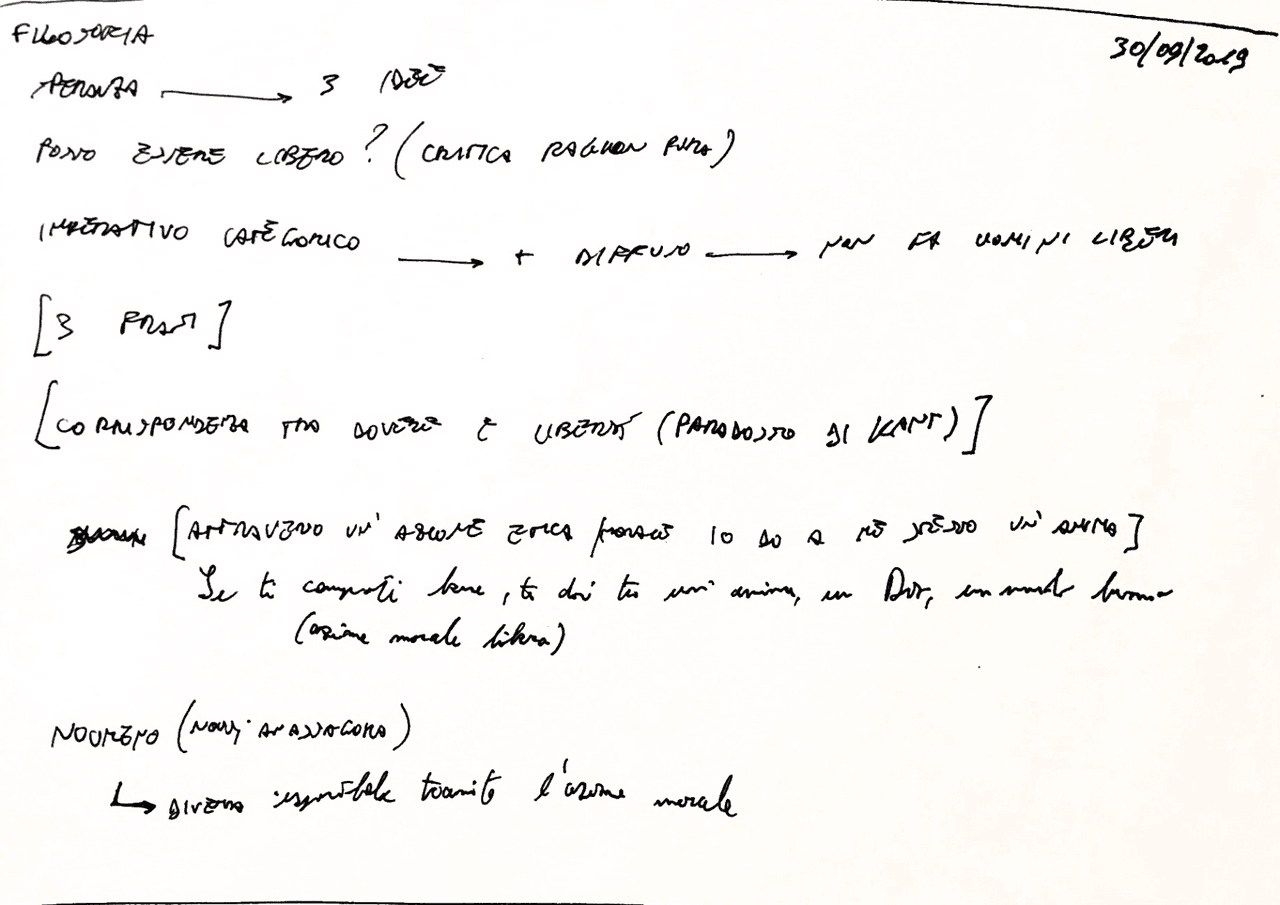 FILOSOFIA 30/09/2019
SPERANZA → 3 IDEE
POSSO ESSERE LIBERO? (CRITICA RAGION PURA)
IMPERATIVO CATEGORICO → + DIFFUSO → NON FA UOMINI LIBERI
[3 FRASI]
[CORRISPONDENZA TRA DOVERE E LIBERTÀ (PARADOSSO DI KANT)]
[ATTRAVERSO UN' AZIONE ETICA/MORALE IO DO A ME STESSO UN' ANIMA]
Se ti comporti bene, ti dai tu un' anima, un Dio, un mondo buono
(azione morale libera)
NOUMENO (NOUS; ANASSAGORA)
↳ DIVENTA tramite l'azione morale